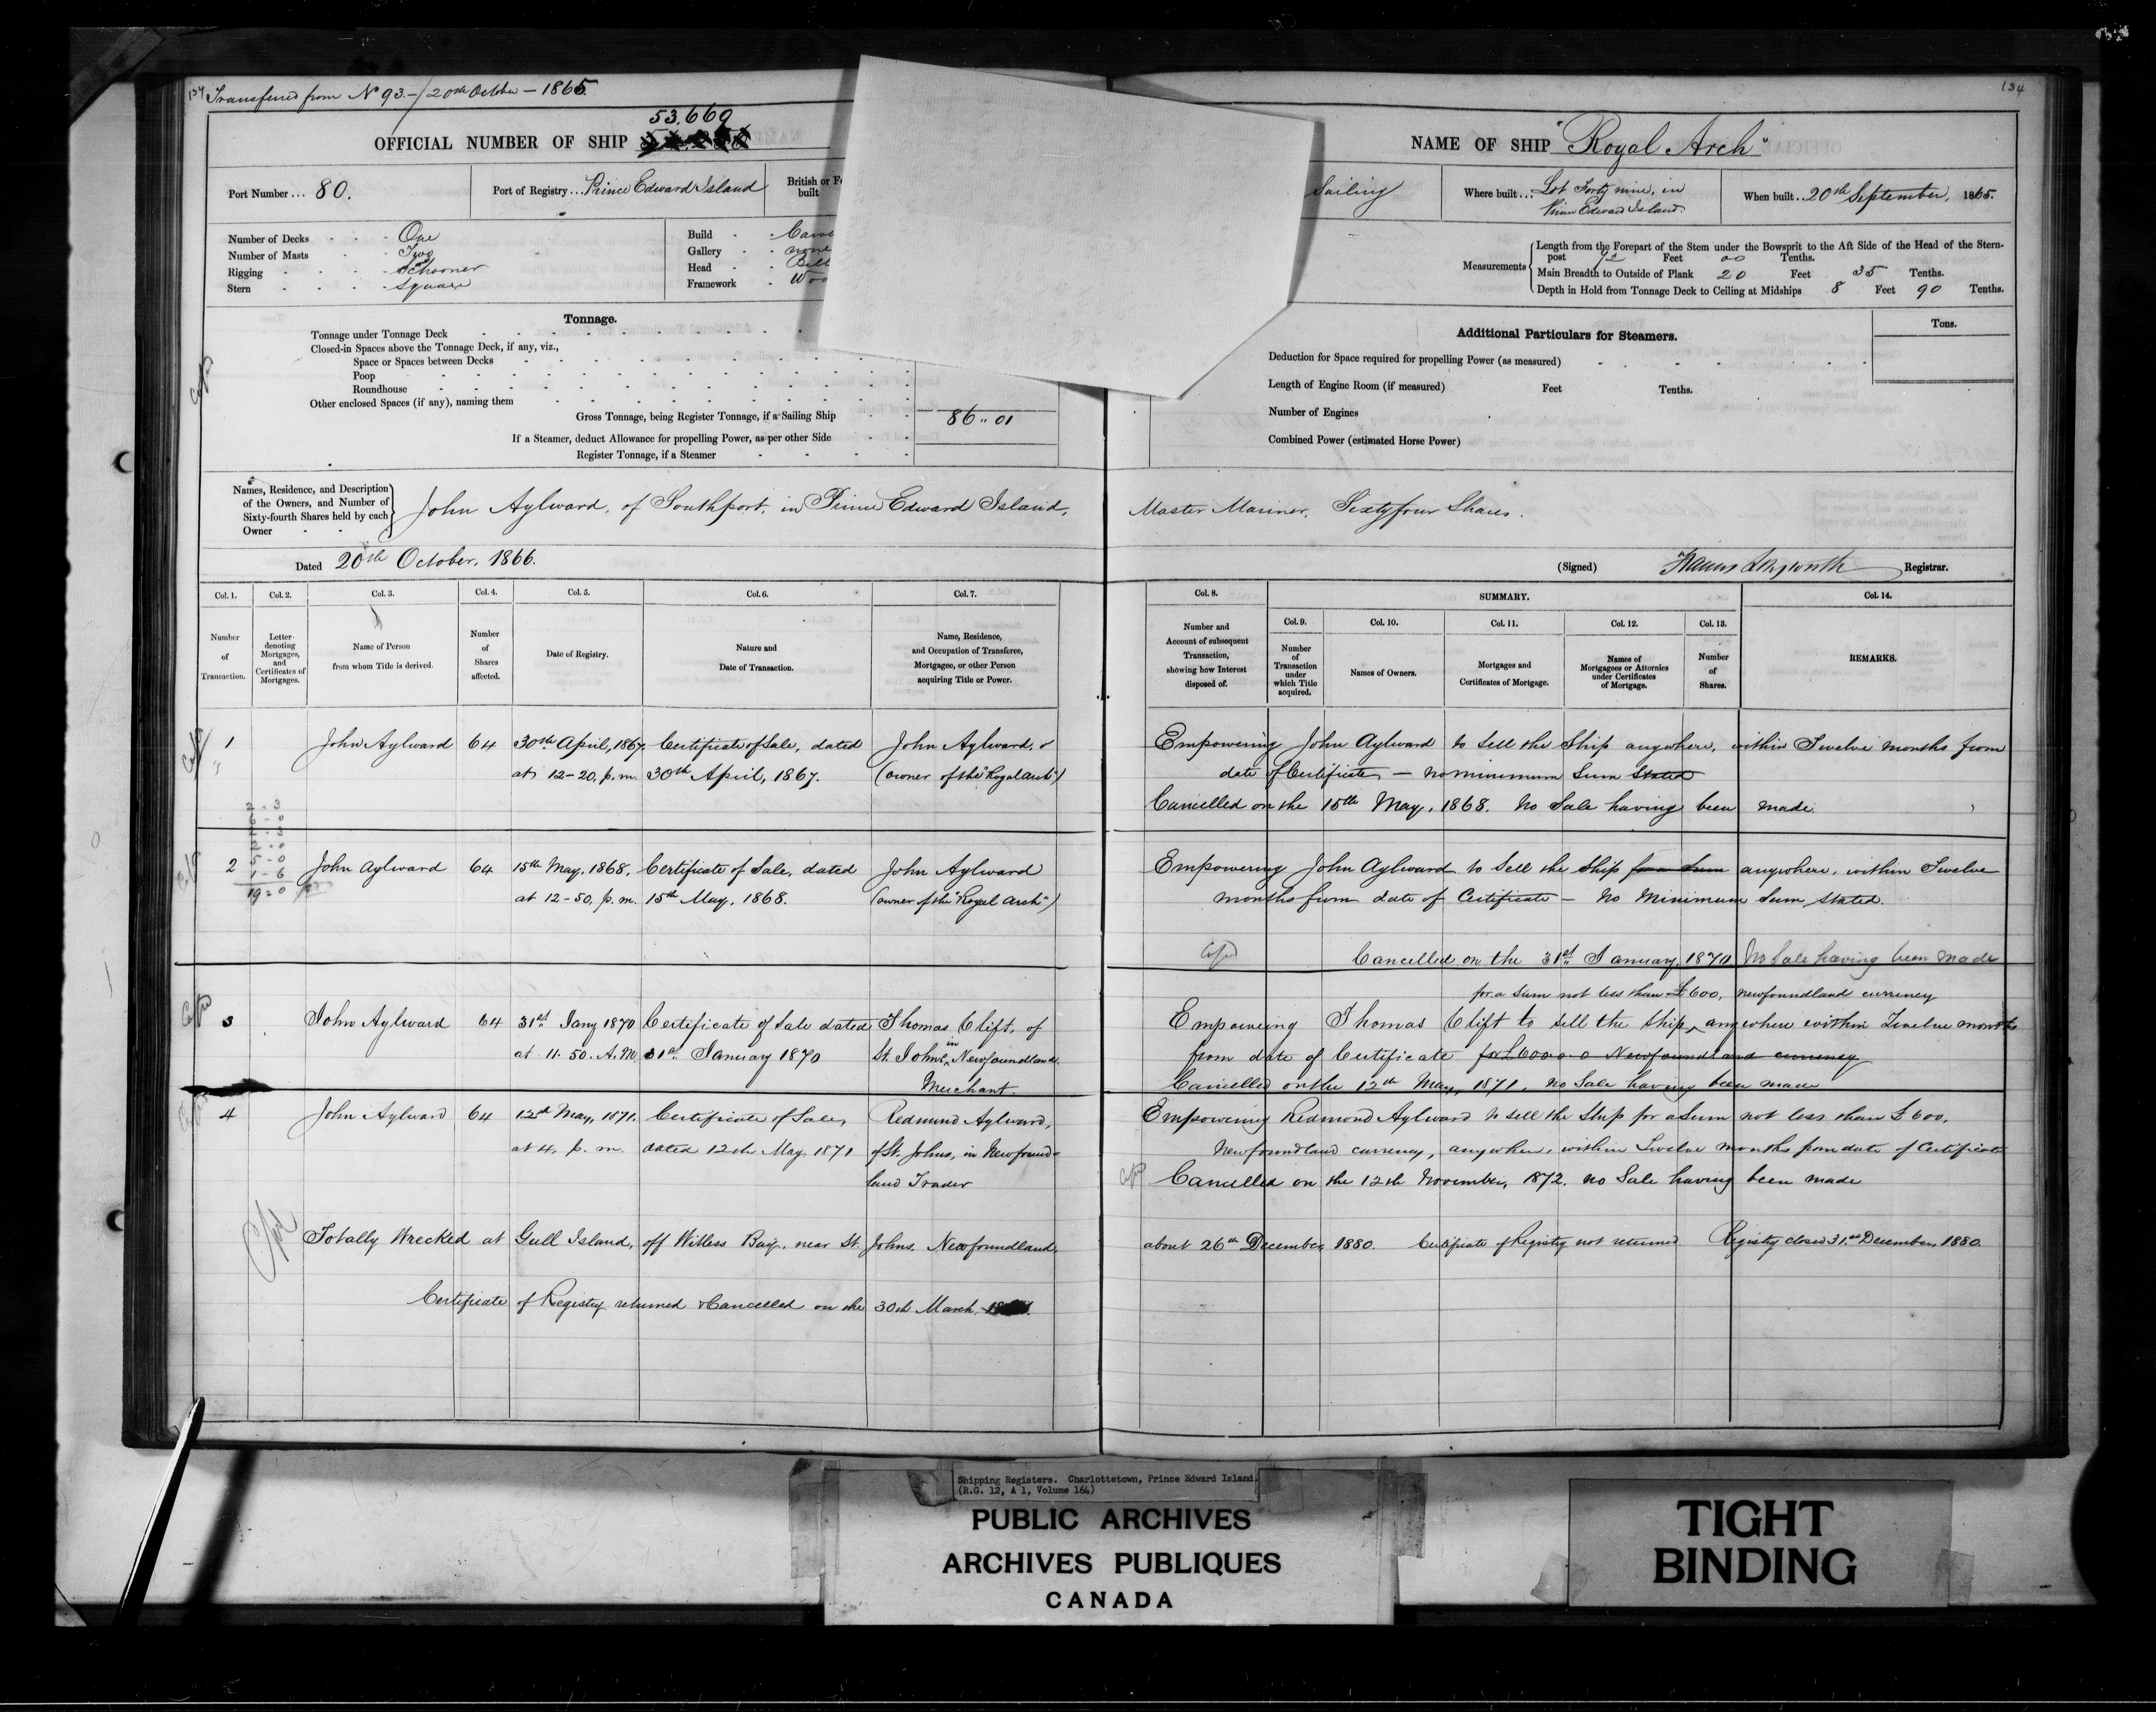 134 Transferred from No 93.-/20th October - 1865
134
53.669
OFFICIAL NUMBER OF SHIP
NAME OF SHIP "Royal Arch"
Port Number ... 80.
Port of Registry ... Prince Edward Island
British or Fo
built
Sailing
Where built ... Lot Forty nine, in
Prince Edward Island.
When built .. 20th September, 1865.
Number of Decks - - - One
Number of Masts - - - Two
Rigging - - - Schooner
Stern - - - Square
Build - - Carve
Gallery - - none
Head - - Bill
Framework - Woo
Measurements
Length from the Forepart of the Stem under the Bowsprit to the Aft Side of the Head of the Stern-
post 92 Feet 00 Tenths.
Main Breadth to Outside of Plank 20 Feet 35 Tenths.
Depth in Hold from Tonnage Deck to Ceiling at Midships 8 Feet 90 Tenths.
Tonnage.
Tonnage under Tonnage Deck
Closed-in Spaces above the Tonnage Deck, if any, viz.,
Space or Spaces between Decks
Poop
Roundhouse
Other enclosed Spaces (if any), naming them
Gross Tonnage, being Register Tonnage, if a Sailing Ship
86 .. 01
If a Steamer, deduct Allowance for propelling Power, as per other Side
Register Tonnage, if a Steamer
Additional Particulars for Steamers.
Tons.
Deduction for Space required for propelling Power (as measured)
Length of Engine Room (if measured) Feet Tenths.
Number of Engines
Combined Power (estimated Horse Power)
Names, Residence, and Description
of the Owners, and Number of
Sixty-fourth Shares held by each
Owner
John Aylward, of Southport, in Prince Edward Island, Master Mariner, Sixty four Shares.
Dated 20th October, 1866.
(Signed) Registrar.
Col. 1.
Number
of
Transaction.
Col. 2.
Letter
denoting
Mortgages,
and
Certificates of
Mortgages.
Col. 3.
Name of Person
from whom Title is derived.
Col. 4.
Number
of
Shares
affected.
Col. 5.
Date of Registry.
Col. 6.
Nature and
Date of Transaction.
Col. 7.
Name, Residence,
and Occupation of Transferee,
Mortgagee, or other Person
acquiring Title or Power.
Col. 8.
Number and
Account of subsequent
Transaction,
showing how Interest
disposed of.
SUMMARY.
Col. 9.
Number
of
Transaction
under
which Title
acquired.
Col. 10.
Names of Owners.
Col. 11.
Mortgages and
Certificates of Mortgage.
Col. 12.
Names of
Mortgagees or Attornies
under Certificates
of Mortgage.
Col. 13.
Number
of
Shares.
Col. 14.
REMARKS.
1 John Aylward 64 30th April, 1867. Certificate of Sale, dated John Aylward,
at 12-20, p.m. 30th April, 1867. (owner of the "Royal Arch")
Empowering John Aylward to sell the Ship anywhere, within Twelve months from
date of Certificate - no minimum Sum Stated
Cancelled on the 15th May, 1868. No Sale having been made.
2 - 3
6 - 0
2 - 3
2 - 0
5 - 0
1 - 6
19 - 0
2 John Aylward 64 15th May, 1868. Certificate of Sale, dated John Aylward
at 12-50, p.m. 15th May, 1868. (owner of the "Royal Arch")
Empowering John Aylward to Sell the Ship for a Sum anywhere, within Twelve
months from date of Certificate - No Minimum Sum, Stated.
Cancelled on the 31st January, 1870 No Sale having been made
3 John Aylward 64 31st Jany 1870 Certificate of Sale dated Thomas Clift, of
at 11.50. A.M. 31st January 1870 St. Johns, in Newfoundland
Merchant.
for a Sum not less than £600, newfoundland currency
Empowering Thomas Clift to sell the Ship, anywhere within Twelve months
from date of Certificate for £600.0.0 Newfoundland currency
Cancelled on the 12th May, 1871. no Sale having been made
4 John Aylward 64 12th May, 1871. Certificate of Sale, Redmund Aylward,
at 4, p.m. dated 12th May 1871 of St. Johns, in Newfound-
land Trader
Empowering Redmond Aylward to sell the Ship for a Sum not less than £600,
Newfoundland currency, anywhere, within Twelve months from date of Certificate
Cancelled on the 12th November, 1872. no Sale having been made
Totally Wrecked at Gull Island, off Witless Bay, near St. Johns. Newfoundland, about 26th December, 1880. Certificate of Registry not returned Registry closed 31st December, 1880.
Certificate of Registry returned & Cancelled on the 30th March,
Shipping Registers. Charlottetown, Prince Edward Island.
(R.G. 12, A 1, Volume 164)
PUBLIC ARCHIVES
ARCHIVES PUBLIQUES
CANADA
TIGHT
BINDING